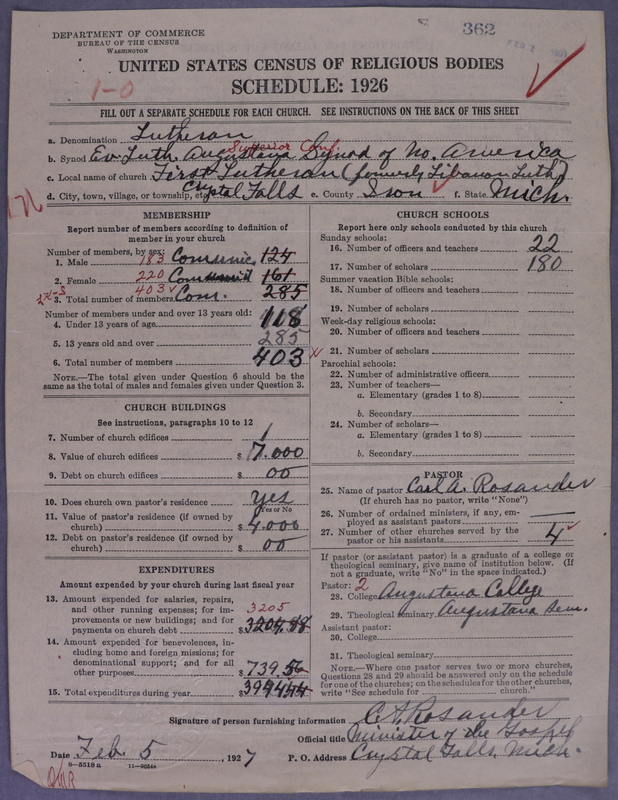 362
DEPARTMENT OF COMMERCE
BUREAU OF THE CENSUS
WASHINGTON
UNITED STATES CENSUS OF RELIGIOUS BODIES
SCHEDULE: 1926
1-0
FILL OUT A SEPARATE SCHEDULE FOR EACH CHURCH. SEE INSTRUCTIONS ON THE BACK OF THIS SHEET
a. Denomination Lutheran
Superior Conf.
b. Synod Ev. Luth. Augustana Synod of No. America
c. Local name of church First Lutheran (formerly Libanon Luth)
d. City, town, village, or township, etc. Crystal Falls e. County Iron f. State Mich.
MEMBERSHIP
Report number of members according to definition of
member in your church
Number of members, by sex:
1. Male 183 Communic 124
2. Female 220 161
403
3. Total number of members Com. 285
Number of members under and over 13 years old:
4. Under 13 years of age 118
5. 13 years old and over 285
6. Total number of members 403
NOTE.—The total given under Question 6 should be the
same as the total of males and females given under Question 3.
CHURCH BUILDINGS
See instructions, paragraphs 10 to 12
7. Number of church edifices 1
8. Value of church edifices $ 7.000
9. Debt on church edifices $ 00
10. Does church own pastor's residence Yes
(Yes or No)
11. Value of pastor's residence (if owned by
church) $ 4.000
12. Debt on pastor's residence (if owned by
church) $ 00
EXPENDITURES
Amount expended by your church during last fiscal year
13. Amount expended for salaries, repairs,
and other running expenses; for im-
provements or new buildings; and for
payments on church debt $ 3204.88
3205
14. Amount expended for benevolences, in-
cluding home and foreign missions; for
denominational support; and for all
other purposes $ 739.56
15. Total expenditures during year $ 394444
CHURCH SCHOOLS
Report here only schools conducted by this church
Sunday schools:
16. Number of officers and teachers 22
17. Number of scholars 180
Summer vacation Bible schools:
18. Number of officers and teachers
19. Number of scholars
Week-day religious schools:
20. Number of officers and teachers
21. Number of scholars
Parochial schools:
22. Number of administrative officers
23. Number of teachers—
a. Elementary (grades 1 to 8)
b. Secondary
24. Number of scholars—
a. Elementary (grades 1 to 8)
b. Secondary
PASTOR
25. Name of pastor Carl A. Rosander
(If church has no pastor, write "None")
26. Number of ordained ministers, if any, em-
ployed as assistant pastors —
27. Number of other churches served by the
pastor or his assistants 4
If pastor (or assistant pastor) is a graduate of a college or
theological seminary, give name of institution below. (If
not a graduate, write "No" in the space indicated.)
Pastor: 2
28. College Augustana College
29. Theological seminary Augustana Sem.
Assistant pastor:
30. College
31. Theological seminary
NOTE.—Where one pastor serves two or more churches,
Questions 28 and 29 should be answered only on the schedule
for one of the churches; on the schedules for the other churches,
write "See schedule for church."
Signature of person furnishing information C A Rosander
Official title Minister of the Gospel
Date Feb. 5, 1927 P. O. Address Crystal Falls, Mich.
8—5518a